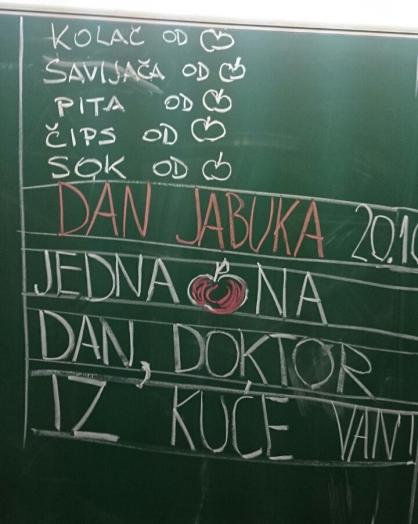 KOLAČ OD
SAVIJAČA OD
PITA OD
ČIPS OD
SOK OD
DAN JABUKA 20.10
JEDNA NA
DAN, DOKTOR
IZ KUĆE VAN!